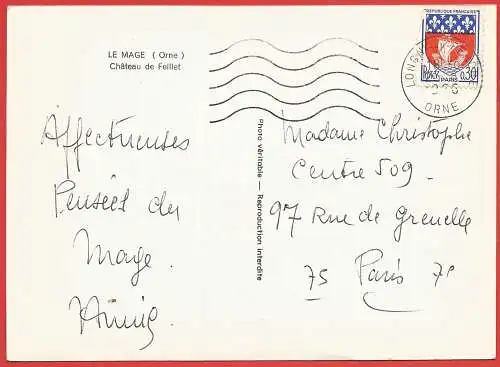 LE MAGE ( Orne )
Château de Feillet
Affectueuses
Pensées du
Mage.
Photo véritable — Reproduction interdite
REPUBLIQUE FRANÇAISE
0,30
PARIS
ORNE
Madame Christophe
Centre 509.
97 Rue de Grenelle
75 Paris 7e